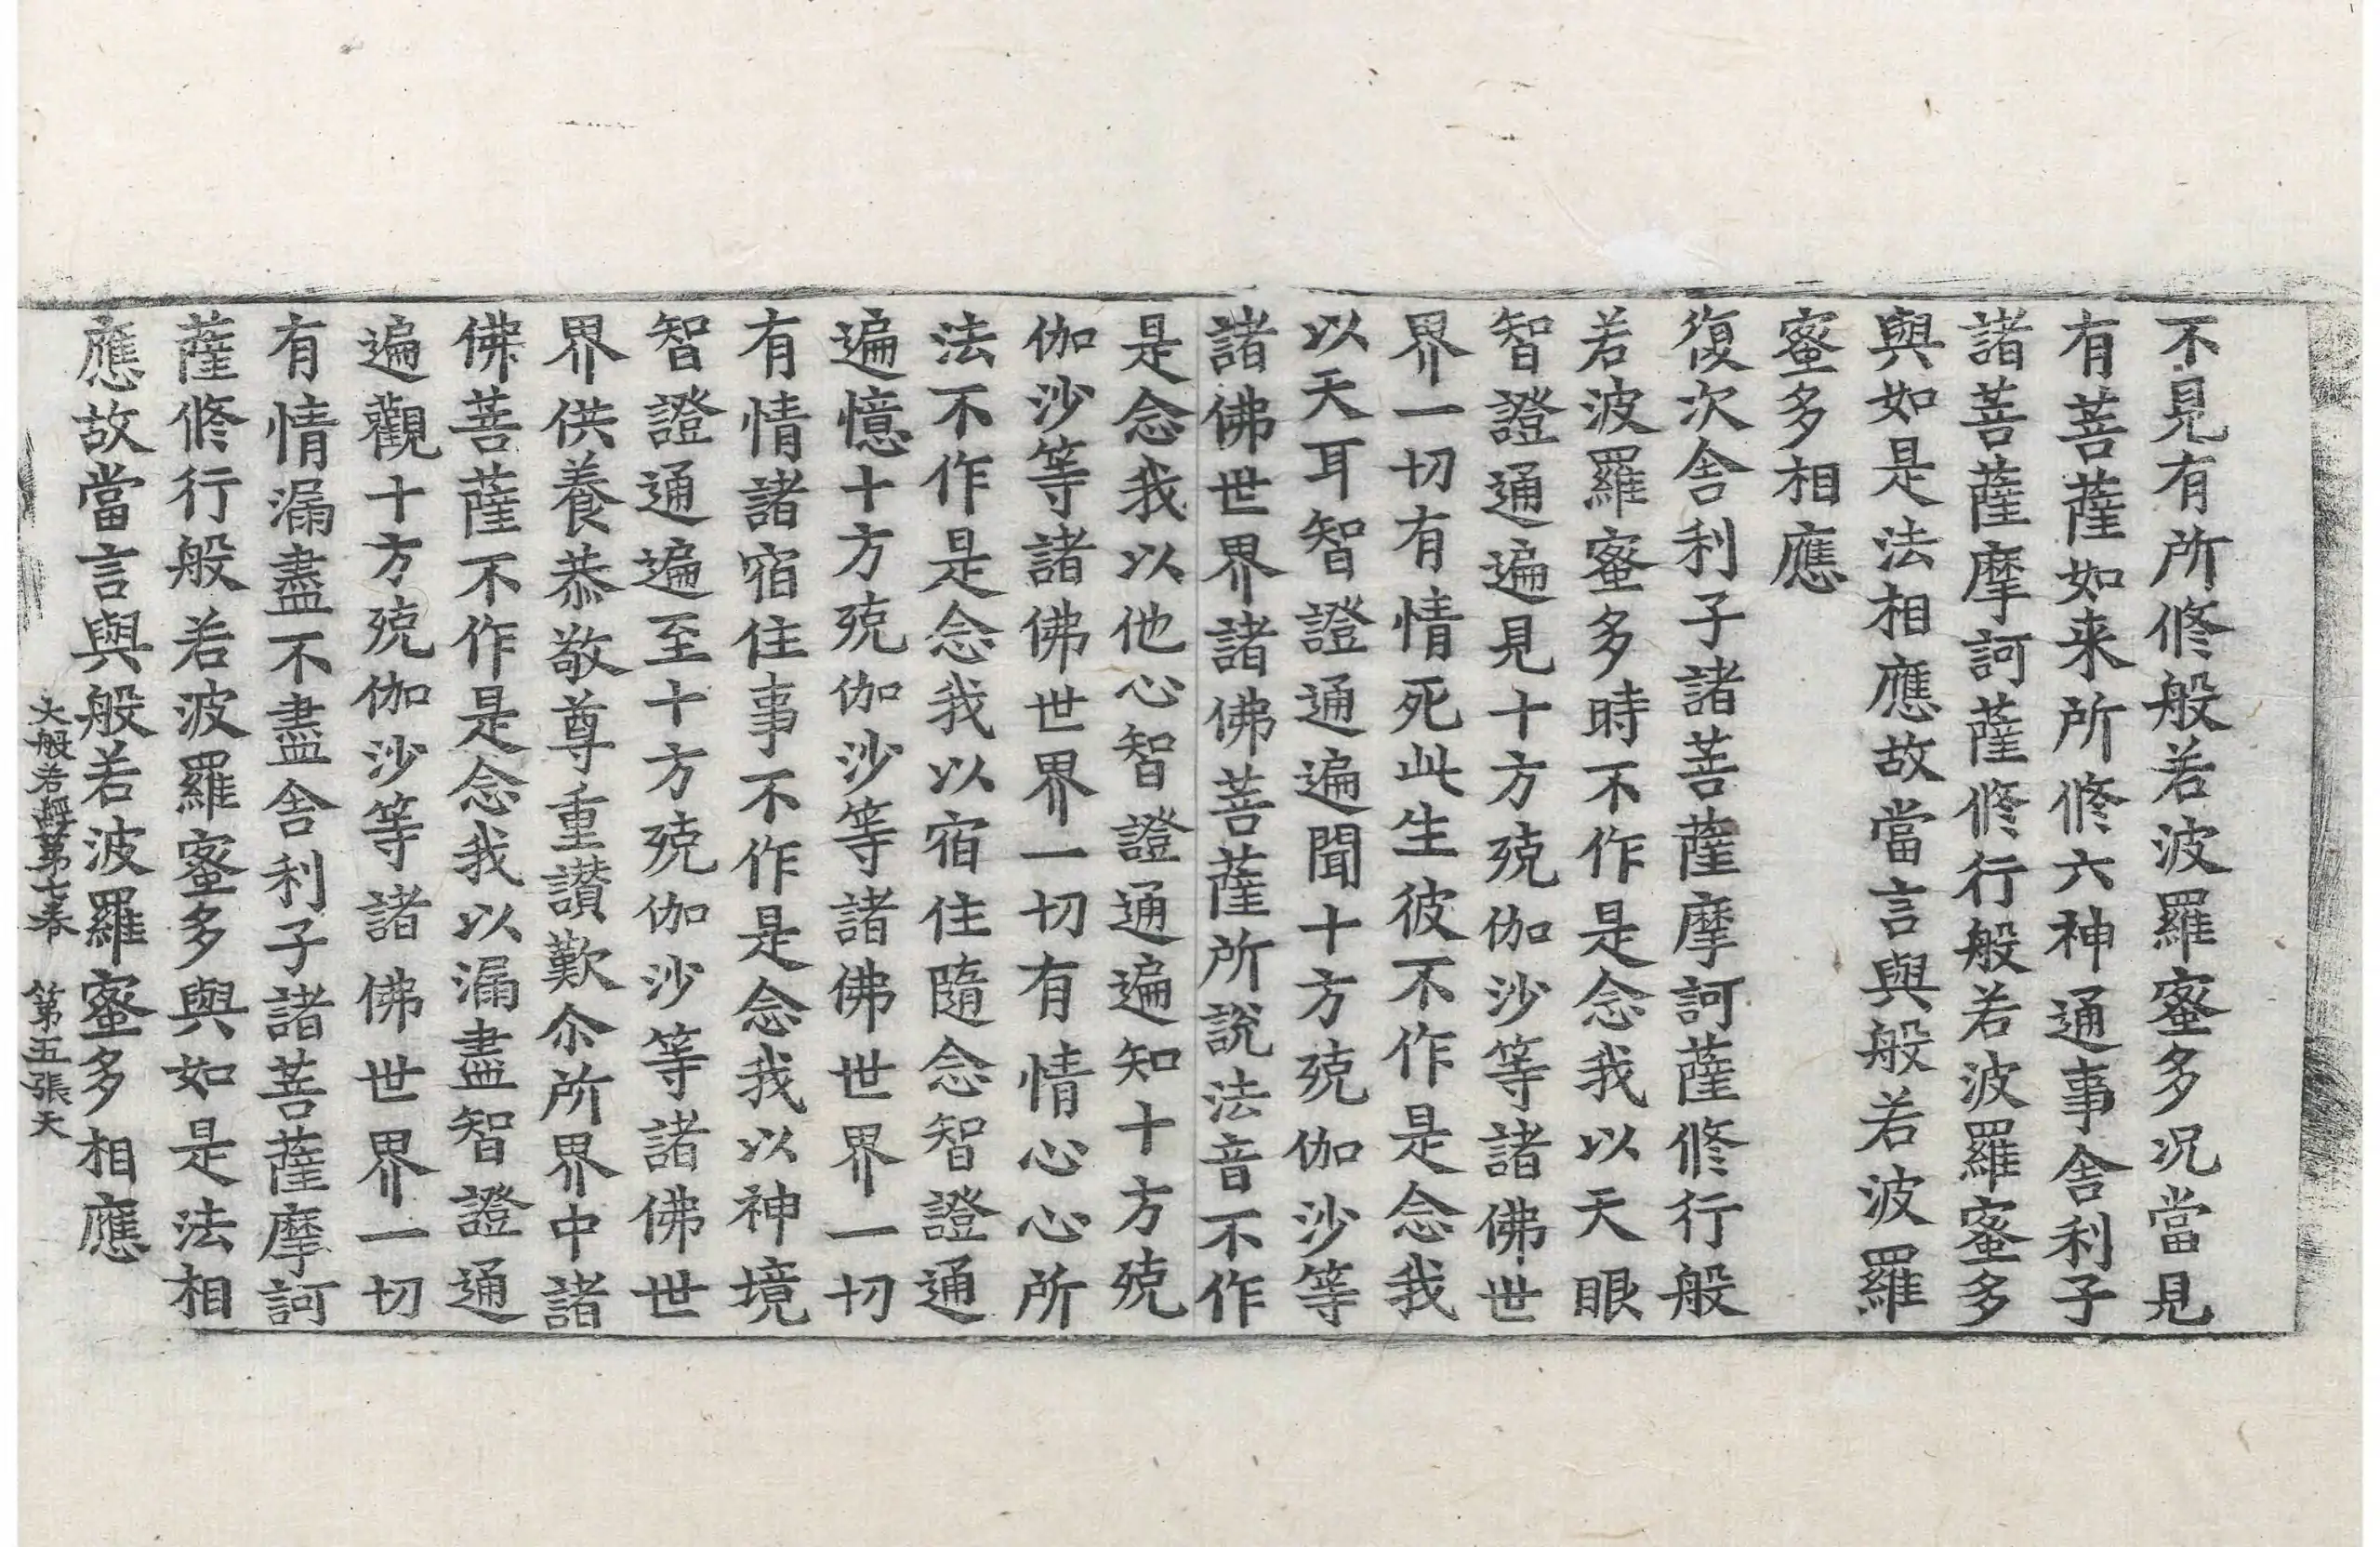 不見有所修般若波羅蜜多况當見
有菩薩如来所修六神通事舎利子
諸菩薩摩訶薩修行般若波羅蜜多
與如是法相應故當言與般若波羅
蜜多相應
復次舎利子諸菩薩摩訶薩修行般
若波羅蜜多時不作是念我以天眼
智證通遍見十方殑伽沙等諸佛世
界一切有情死此生彼不作是念我
以天耳智證通遍聞十方殑伽沙等
諸佛世界諸佛菩薩所說法音不作
是念我以他心智證通遍知十方殑
伽沙等諸佛世界一切有情心心所
法不作是念我以宿住隨念智證通
遍憶十方殑伽沙等諸佛世界一切
有情諸宿住事不作是念我以神境
智證通遍至十方殑伽沙等諸佛世
界供養恭敬尊重讚歎尒所界中諸
佛菩薩不作是念我以漏盡智證通
遍觀十方殑伽沙等諸佛世界一切
有情漏盡不盡舎利子諸菩薩摩訶
薩修行般若波羅蜜多與如是法相
應故當言與般若波羅蜜多相應
大般若經第七卷 第五張天